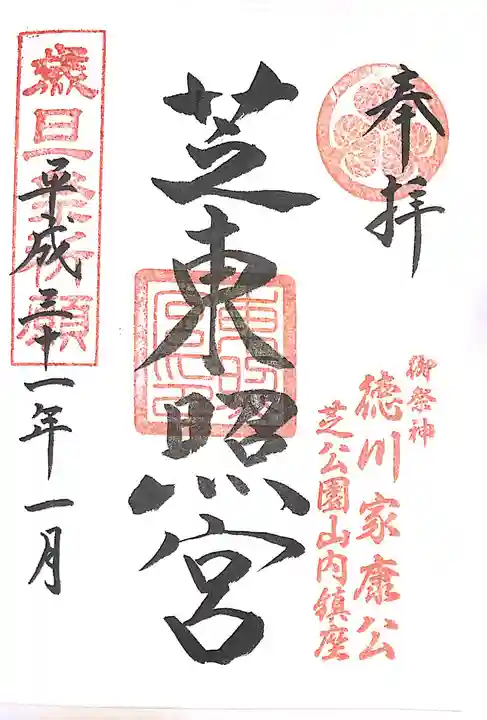 奉拝
御祭神
徳川家康公
芝公園山内鎮座
芝東照宮
歳旦
祈願
平成三十一年一月